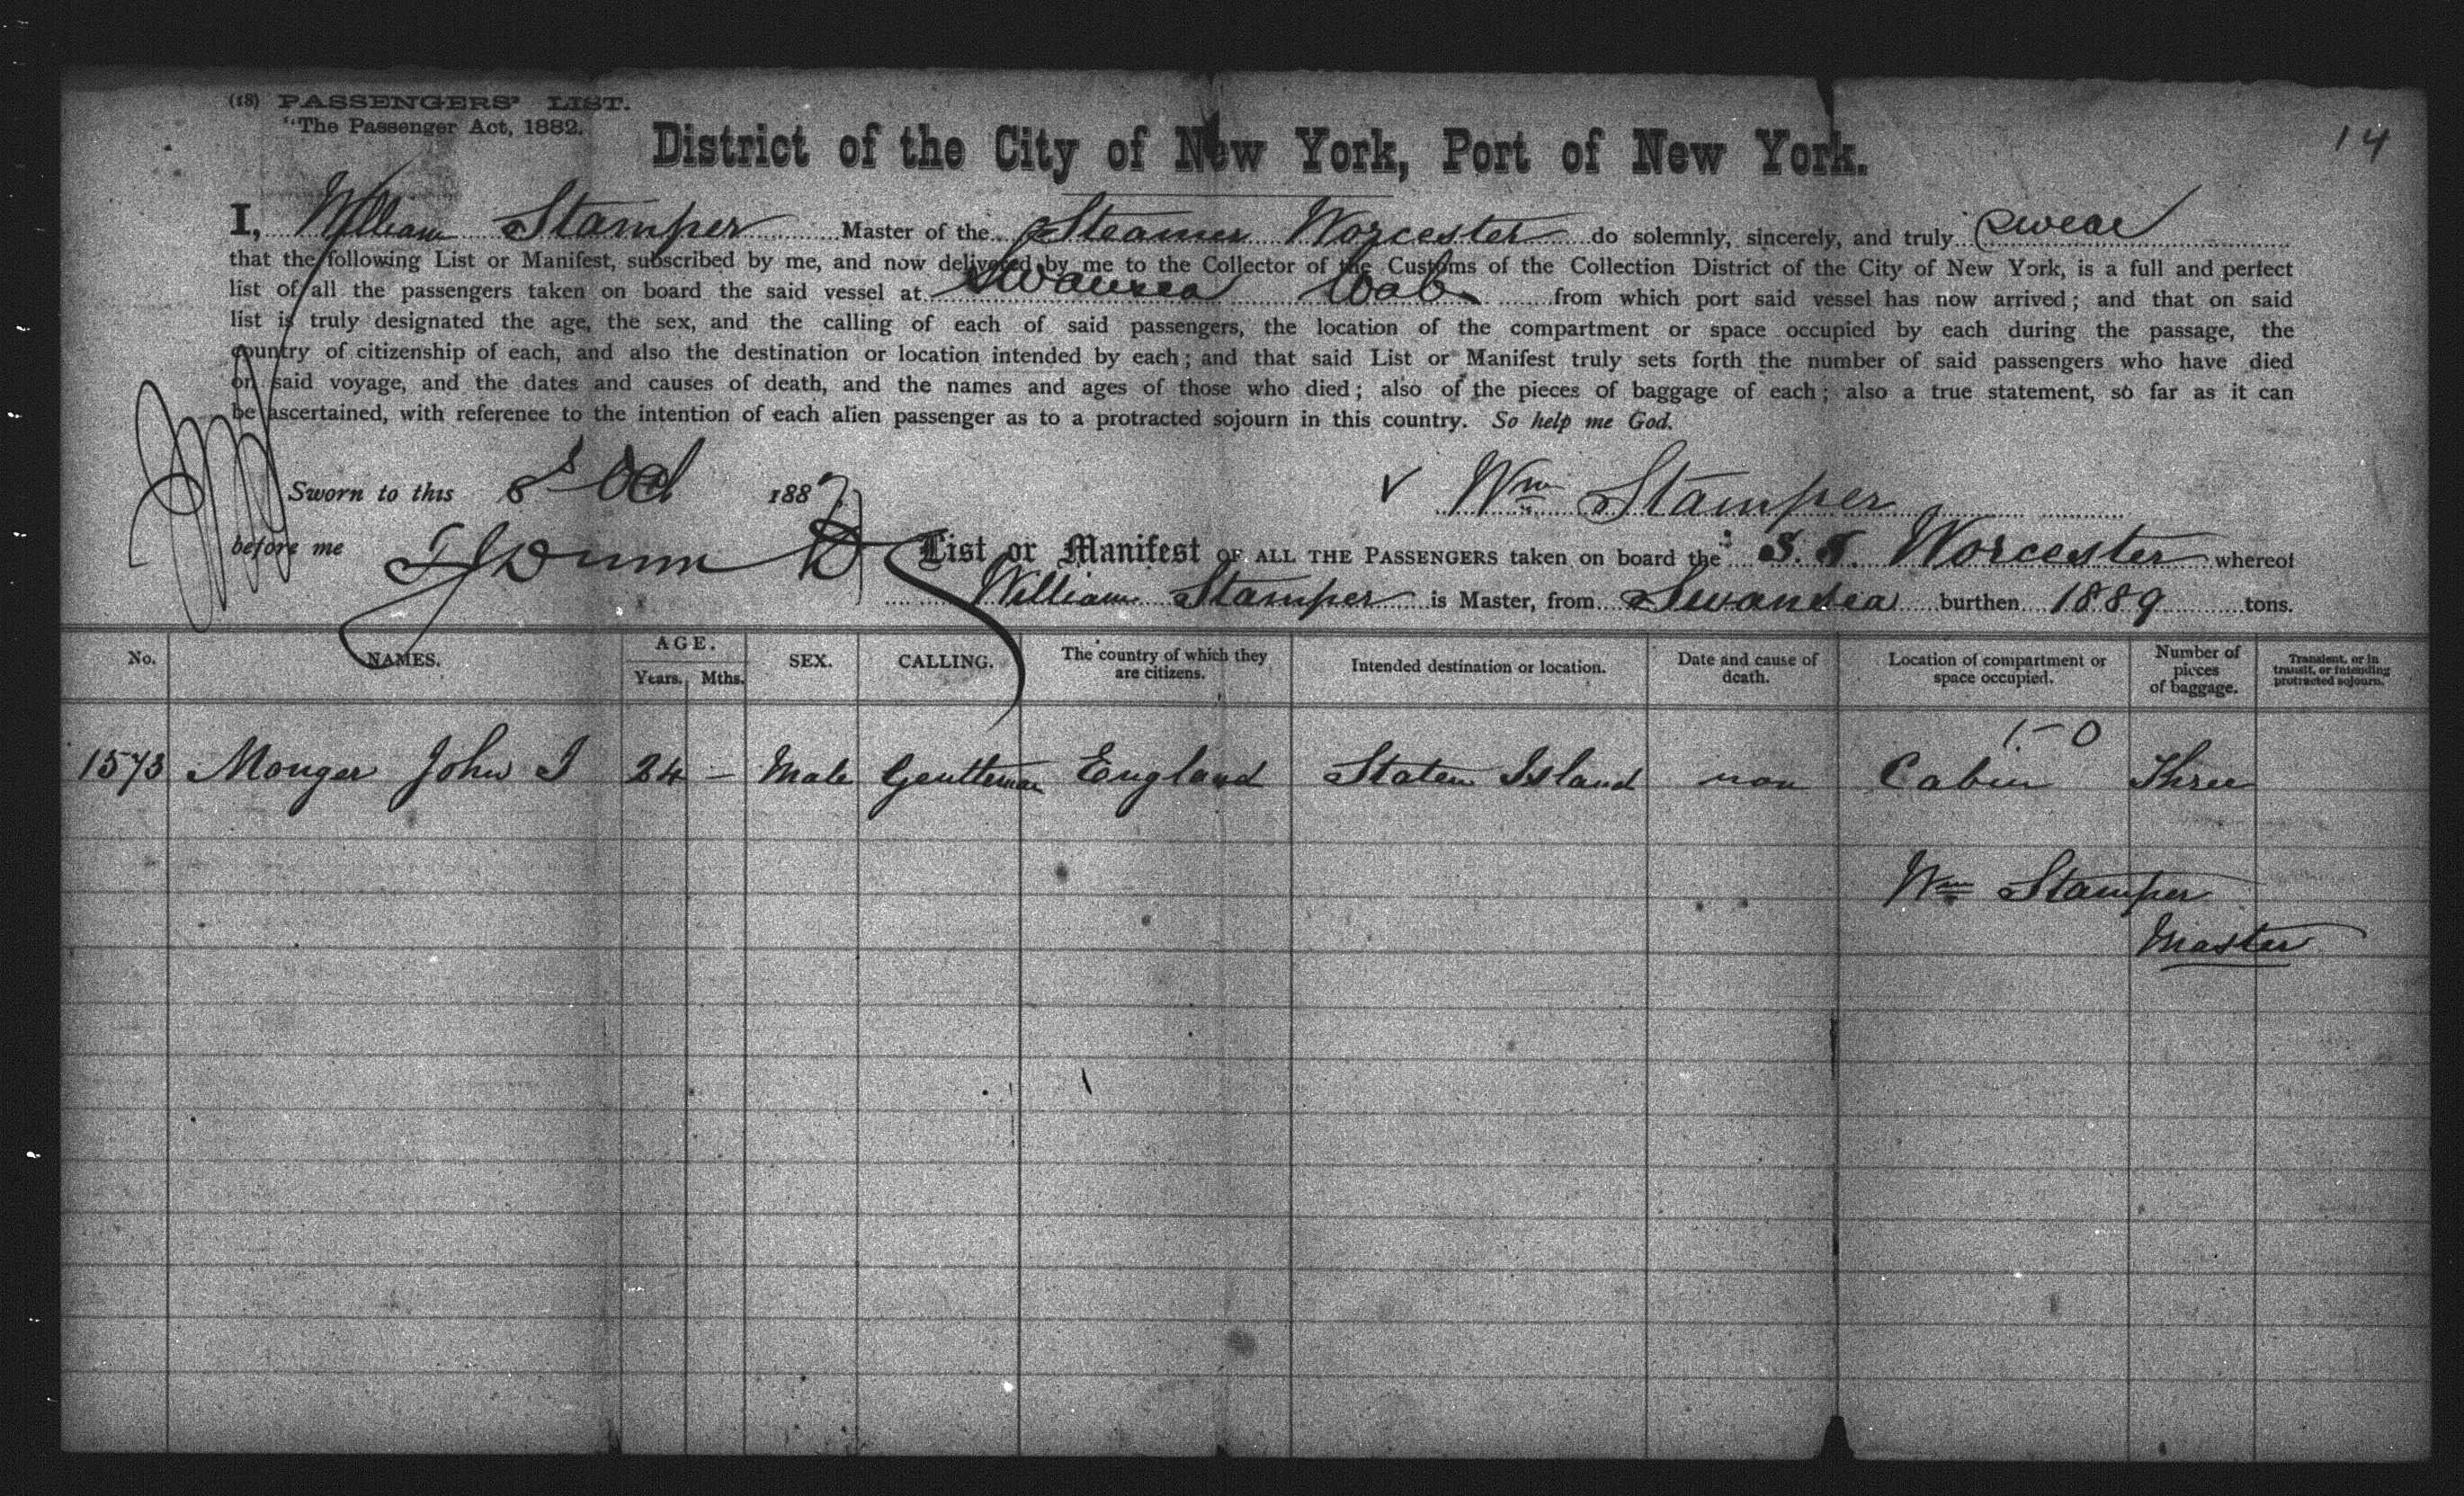 (18) PASSENGERS' LIST.
"The Passenger Act, 1882.
District of the City of New York, Port of New York.
14
I, William Stamper Master of the Steamer Worcester do solemnly, sincerely, and truly swear
that the following List or Manifest, subscribed by me, and now delivered by me to the Collector of the Customs of the Collection District of the City of New York, is a full and perfect
list of all the passengers taken on board the said vessel at Swansea from which port said vessel has now arrived; and that on said
list is truly designated the age, the sex, and the calling of each of said passengers, the location of the compartment or space occupied by each during the passage, the
country of citizenship of each, and also the destination or location intended by each; and that said List or Manifest truly sets forth the number of said passengers who have died
on said voyage, and the dates and causes of death, and the names and ages of those who died; also of the pieces of baggage of each; also a true statement, so far as it can
be ascertained, with reference to the intention of each alien passenger as to a protracted sojourn in this country. So help me God.
Sworn to this 8 Oct 1887
Wm Stamper
before me
List or Manifest OF ALL THE PASSENGERS taken on board the S.S. Worcester whereof
William Stamper is Master, from Swansea burthen 1889 tons.
No. NAMES. AGE. Years. Mths. SEX. CALLING. The country of which they are citizens. Intended destination or location. Date and cause of death. Location of compartment or space occupied. Number of pieces of baggage. Transient, or in transit, or intending protracted sojourn.
1-0
1573 Monger John J 24 - Male Gentleman England Staten Island non Cabin Three
Wm Stamper
Master